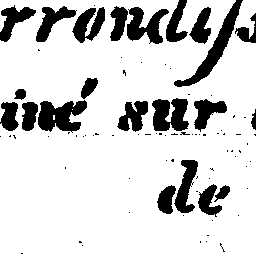 rrondiſs
iné sur
de